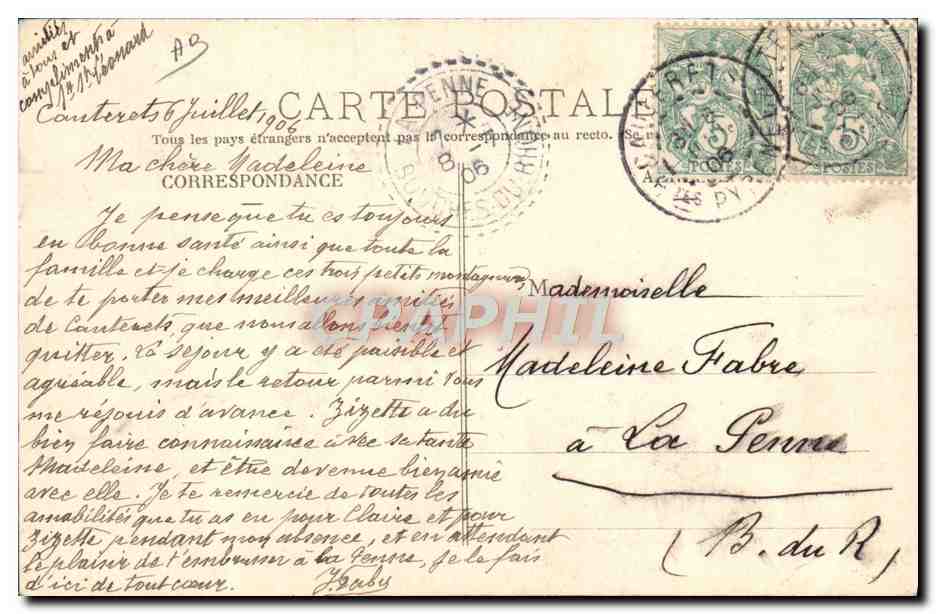 amitiés
à tous et
compliments à
AB
Cauterets 6 Juillet 1906
CARTE POSTALE
Tous les pays étrangers n'acceptent pas la correspondance au recto.
Ma chère Madeleine
CORRESPONDANCE
Je pense que tu es toujours
en bonne santé ainsi que toute la
famille et je charge ces trois petits montagnards
de te porter mes meilleures amitiés
de Cauterets, que nous allons bientôt
quitter. Le séjour y a été paisible et
agréable, mais le retour parmi vous
me réjouis d'avance. Zizette a du
bien faire connaissance avec sa tante
Madeleine, et être devenue bien amie
avec elle. Je te remercie de toutes les
amabilités que tu as eu pour Claire et pour
Zizette pendant mon absence, et en attendant
le plaisir de t'embrasser à la Penne, je le fais
d'ici de tout cœur.
Mademoiselle
Madeleine Fabre
à La Penne
(B. du R)
LA PENNE
8 - 7
06
BCHES-DU-RHÔNE
CAUTERETS
06
5c
POSTES
5c
POSTES
CPAPHIL